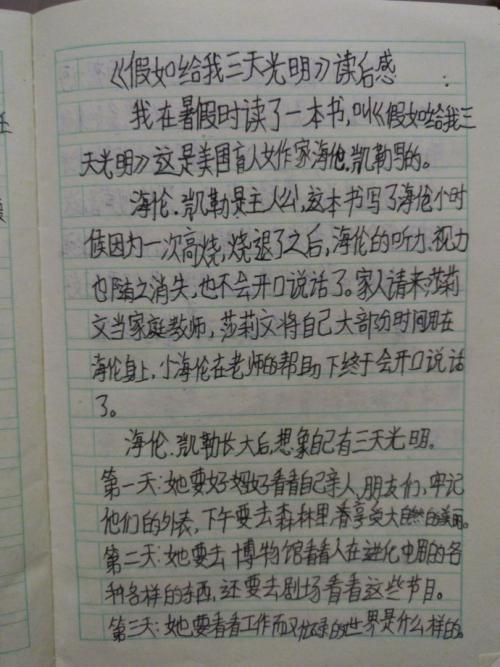 《假如给我三天光明》读后感
我在暑假时读了一本书,叫《假如给我三
天光明》这是美国盲人女作家海伦.凯勒写的。
海伦.凯勒是主人公,这本书写了海伦小时
候因为一次高烧,烧退了之后,海伦的听力、视力
也随之消失,也不会开口说话了。家人请来莎莉
文当家庭教师,莎莉文将自己大部分时间用在
海伦身上,小海伦在老师的帮助下终于会开口说话
了。
海伦.凯勒长大后,想象自己有三天光明。
第一天:她要好好看看自己亲人,朋友们,牢记
他们的外表,下午要去森林里,享受大自然的美丽。
第二天:她要去博物馆看看人在进化中用的各
种各样的东西,还要去剧场看看这些节目。
第三天:她要看看工作而又忙碌的世界是什么样的。